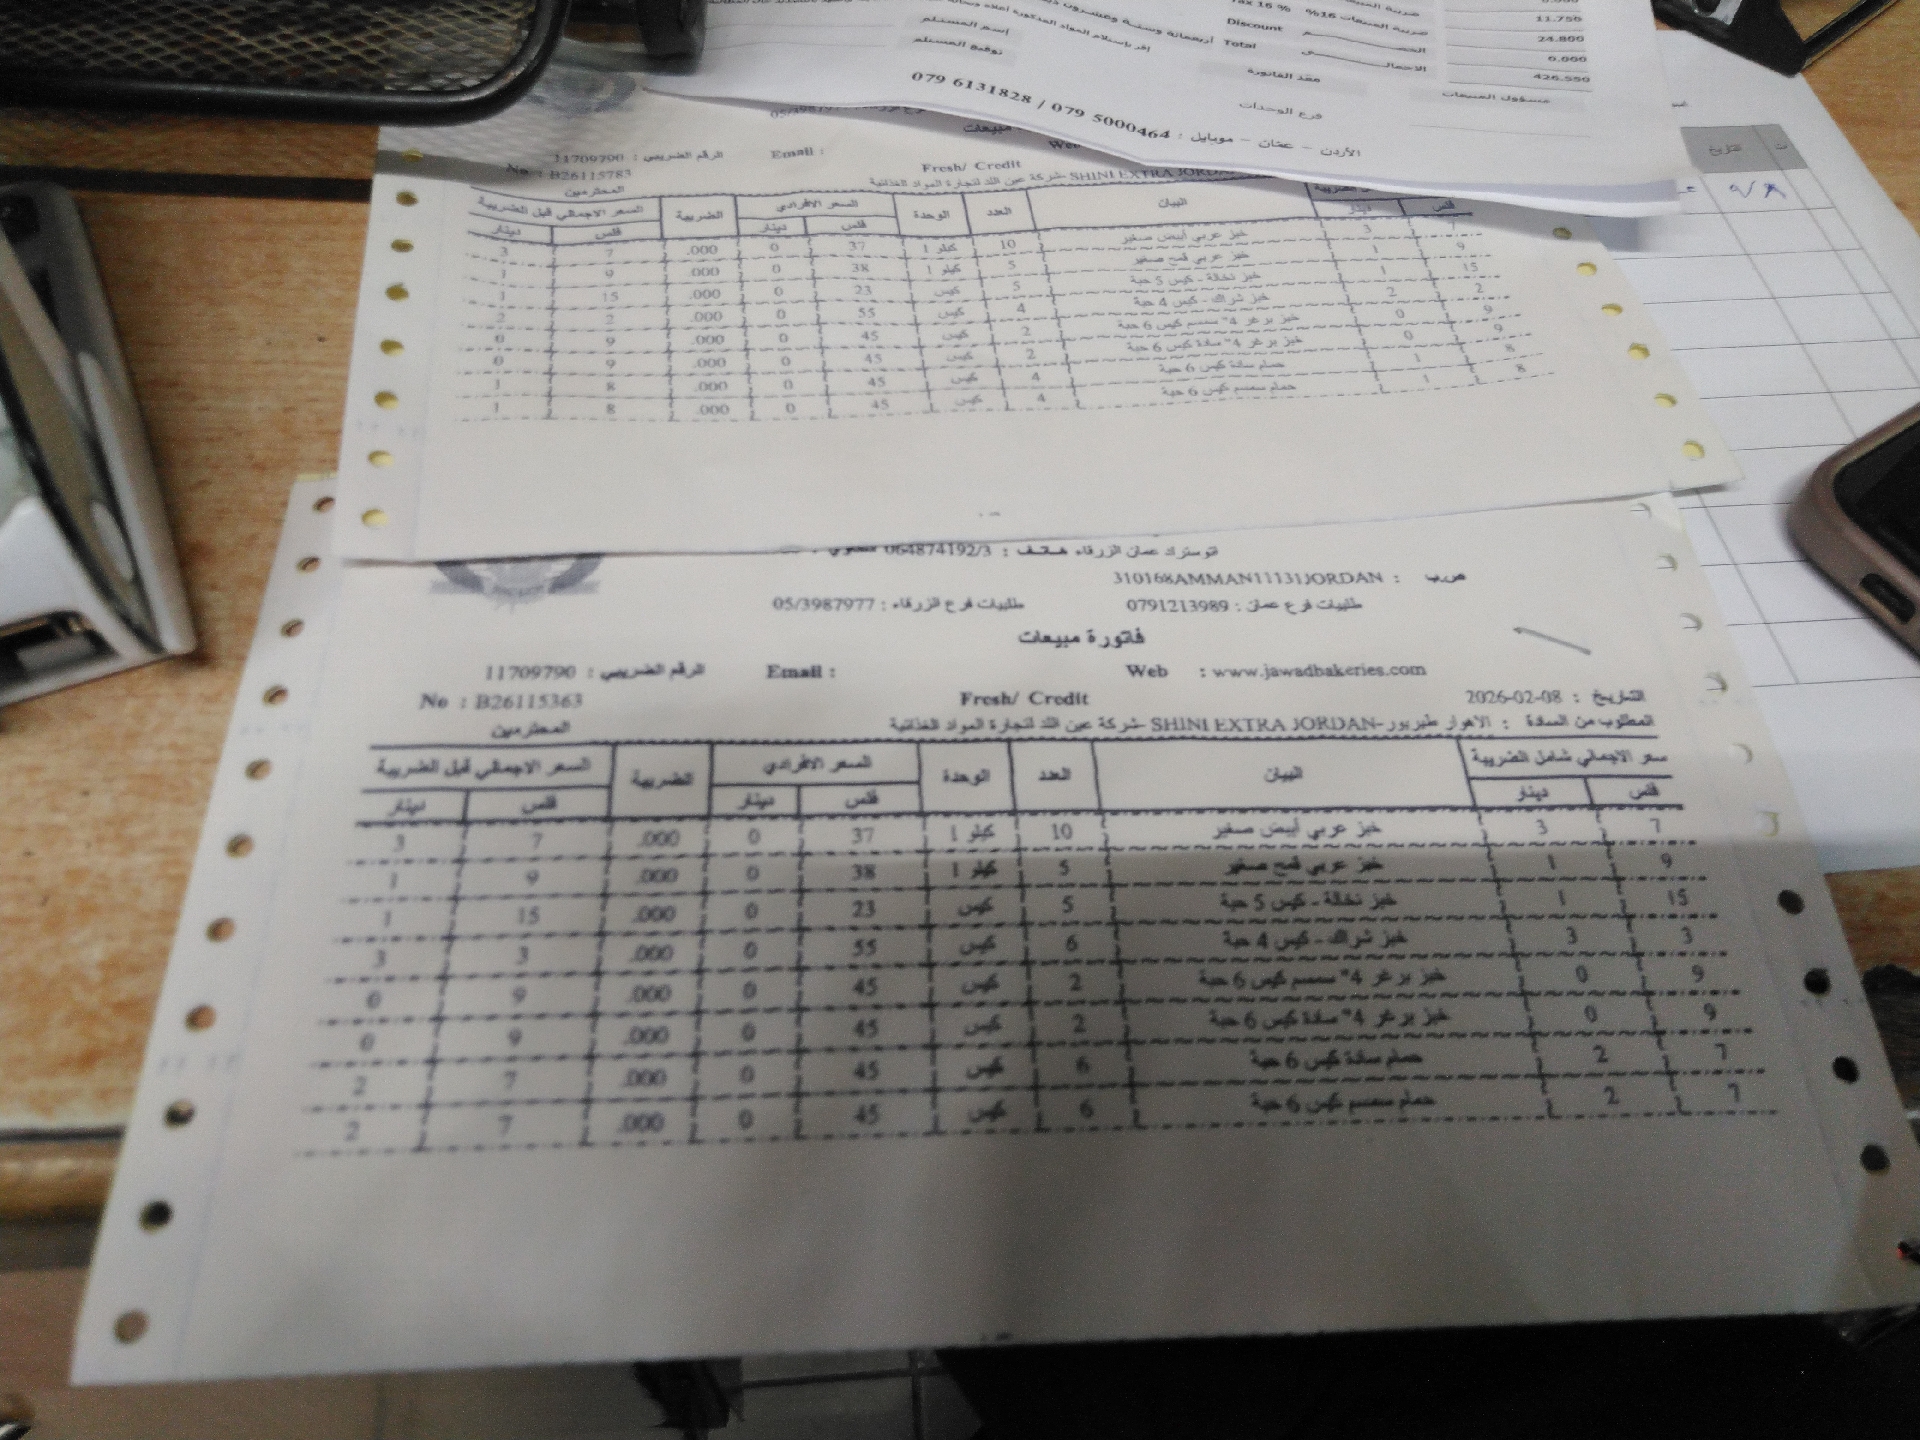 Tax 16 % ضريبة المبيعات 16% 11.756
Discount الخصم 24.800
Total الاجمالي 6.000
426.550
إسم المستلم
توقيع المستلم
معد الفاتورة
مسؤول المبيعات
فرع الوحدات
الأردن - عمان - موبايل : 079 5000464 / 079 6131828
التاريخ
الرقم الضريبي : 11709790 Email :
No : B26115783 Fresh/ Credit
المحترمين SHINI EXTRA JORDAN-شركة عين اللد لتجارة المواد الغذائية
البيان العدد الوحدة السعر الافرادي الضريبة السعر الاجمالي قبل الضريبة
فلس دينار فلس دينار فلس دينار
7 3 خبز عربي أبيض صغير 10 كيلو 1 37 0 .000 7 3
9 1 خبز عربي قمح صغير 5 كيلو 1 38 0 .000 9 1
15 1 خبز نخالة - كيس 5 حبة 5 كيس 23 0 .000 15 1
2 2 خبز شراك - كيس 4 حبة 4 كيس 55 0 .000 2 2
9 0 خبز برغر 4" سمسم كيس 6 حبة 2 كيس 45 0 .000 9 0
9 0 خبز برغر 4" سادة كيس 6 حبة 2 كيس 45 0 .000 9 0
8 1 حمام سادة كيس 6 حبة 4 كيس 45 0 .000 8 1
8 1 حمام سمسم كيس 6 حبة 4 كيس 45 0 .000 8 1
اوتوستراد عمان الزرقاء هاتف : 064874192/3
ص.ب : 310168AMMAN11131JORDAN
طلبيات فرع عمان : 0791213989 طلبيات فرع الزرقاء : 05/3987977
فاتورة مبيعات
Web : www.jawadbakeries.com Email : الرقم الضريبي : 11709790
التاريخ : 2026-02-08 Fresh/ Credit No : B26115363
المطلوب من السادة : الاهوار طبربور-SHINI EXTRA JORDAN-شركة عين اللد لتجارة المواد الغذائية المحترمين
سعر الاجمالي شامل الضريبة البيان العدد الوحدة السعر الافرادي الضريبة السعر الاجمالي قبل الضريبة
فلس دينار فلس دينار فلس دينار
7 3 خبز عربي أبيض صغير 10 كيلو 1 37 0 .000 7 3
9 1 خبز عربي قمح صغير 5 كيلو 1 38 0 .000 9 1
15 1 خبز نخالة - كيس 5 حبة 5 كيس 23 0 .000 15 1
3 3 خبز شراك - كيس 4 حبة 6 كيس 55 0 .000 3 3
9 0 خبز برغر 4" سمسم كيس 6 حبة 2 كيس 45 0 .000 9 0
9 0 خبز برغر 4" سادة كيس 6 حبة 2 كيس 45 0 .000 9 0
7 2 حمام سادة كيس 6 حبة 6 كيس 45 0 .000 7 2
7 2 حمام سمسم كيس 6 حبة 6 كيس 45 0 .000 7 2